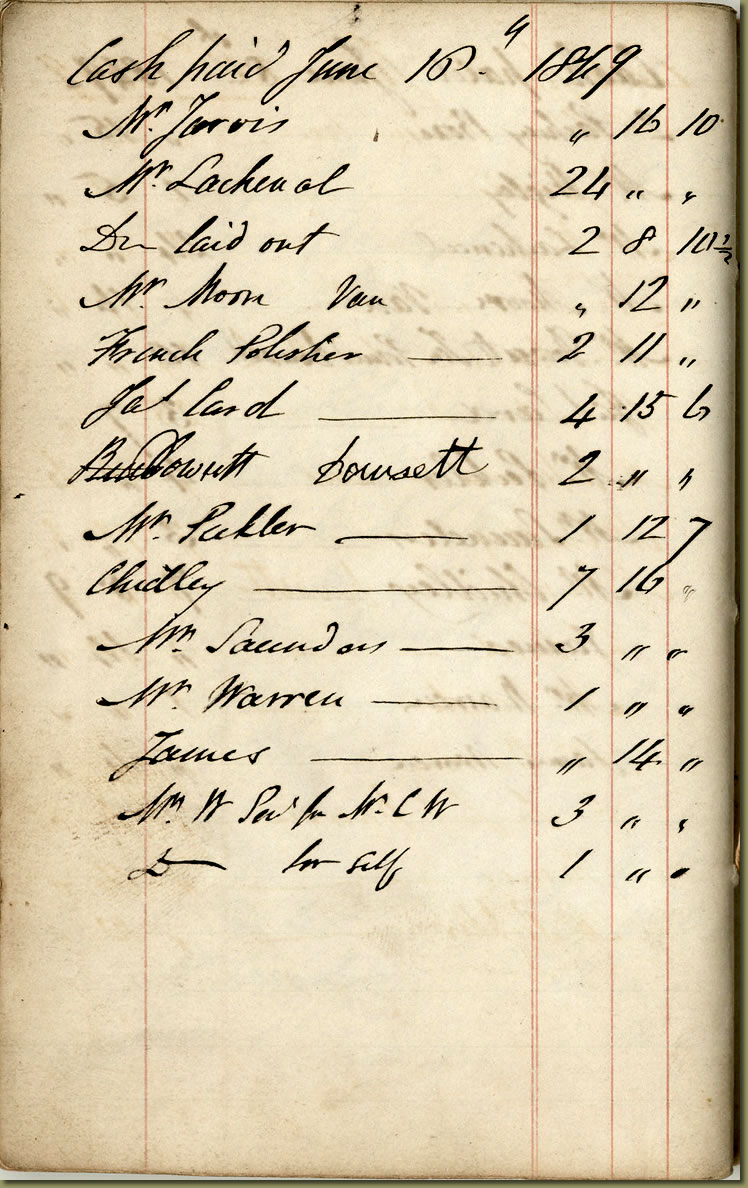 Cash paid June 16th 1849
Mr Jarvis " 16 10
Mr Lachenal 24 " "
Do laid out 2 8 10 1/2
Mr Moon Van " 12 "
French Polisher 2 11 "
Jas Card 4 15 6
Dowsett 2 " "
Mr 1 12 7
Chidley 7 16 "
Mr Saunders 3 " "
Mr Warren 1 " "
James " 14 "
Mr W for Mr C W 3 " "
Do for Self 1 " "